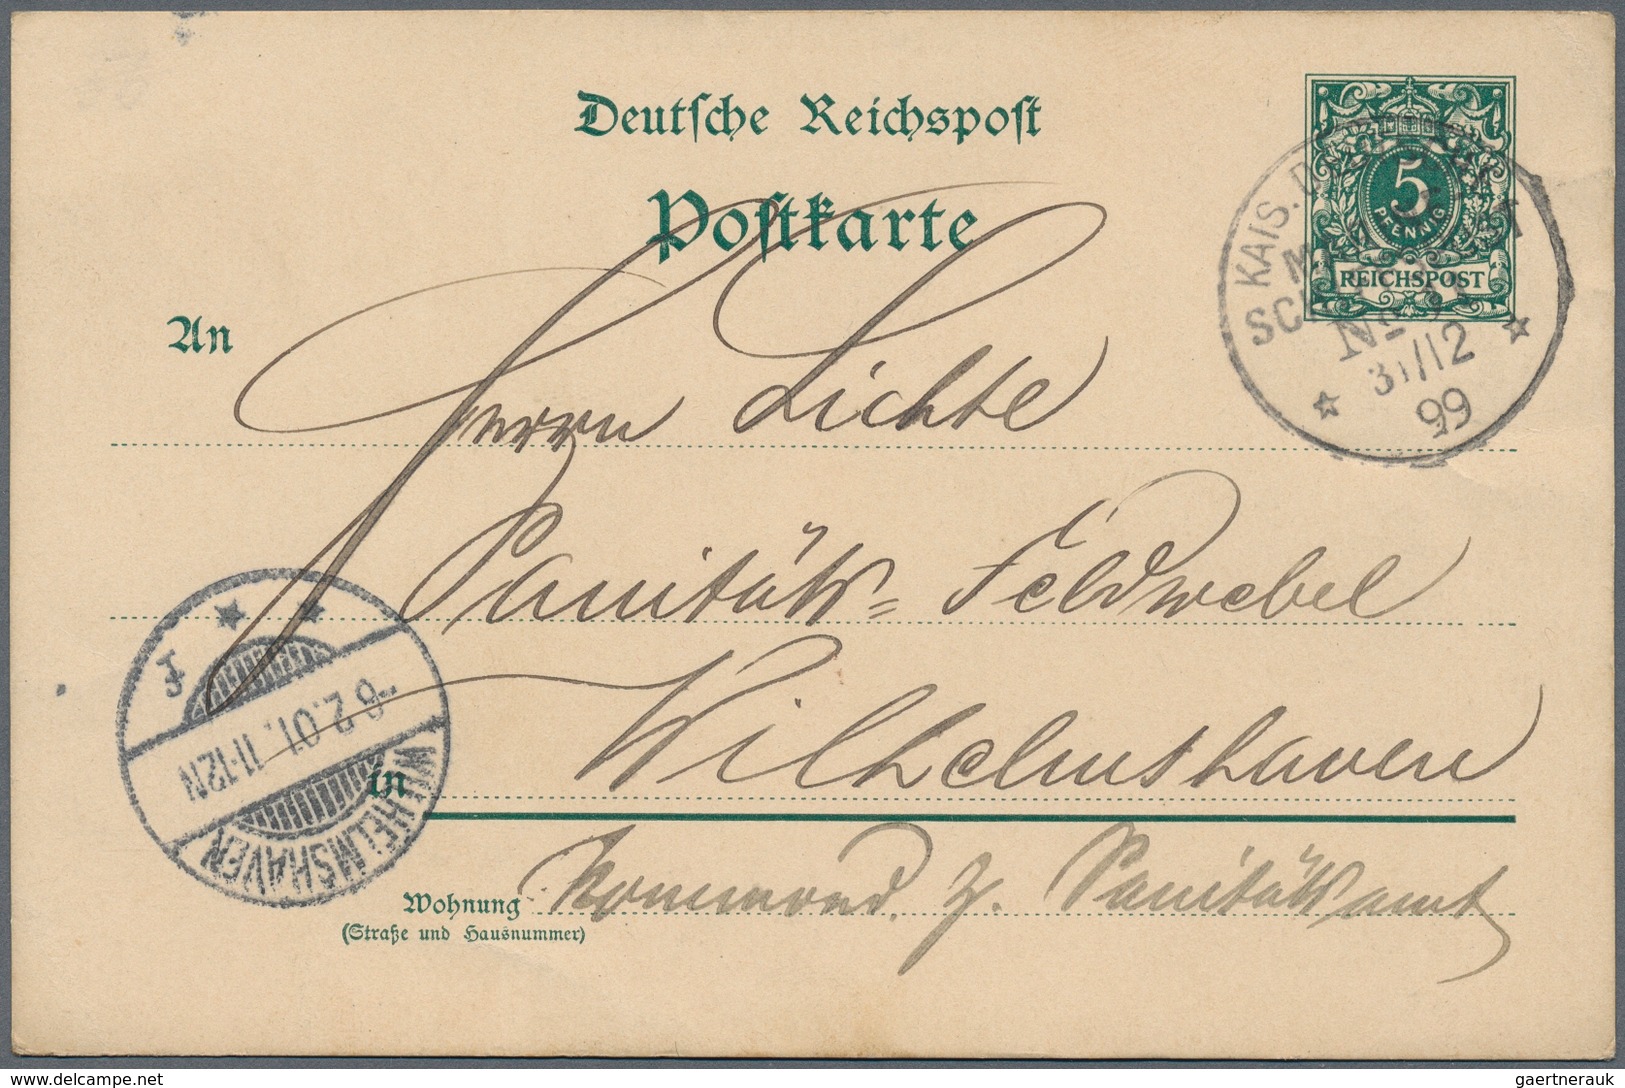 Deutsche Reichspost
Postkarte
5
PFENNIG
REICHSPOST
KAIS. D.
SCH
No
31/12
99
An
Herrn Lichte
Sanitäts=Feldwebel
in Wilhelmshaven
Wohnung Kommand. z. Sanitätsamt
(Straße und Hausnummer)
WILHELMSHAVEN
-8.2.01. 11-12N
delcampe.net
gaertnerauk